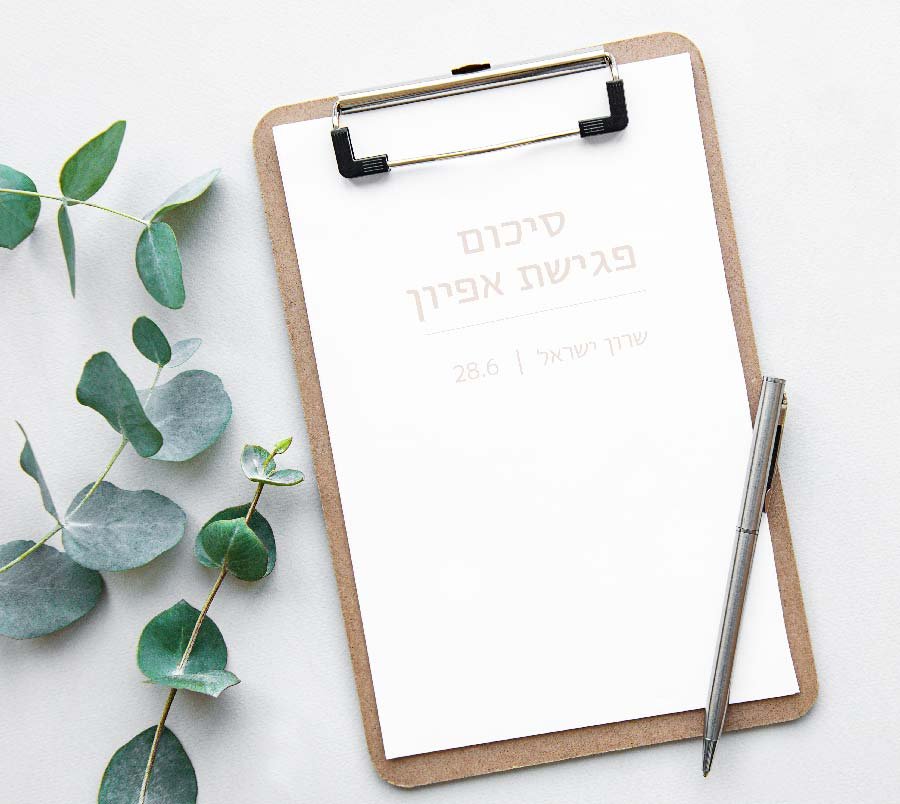 סיכום
פגישת אפיון
שרון ישראל | 28.6